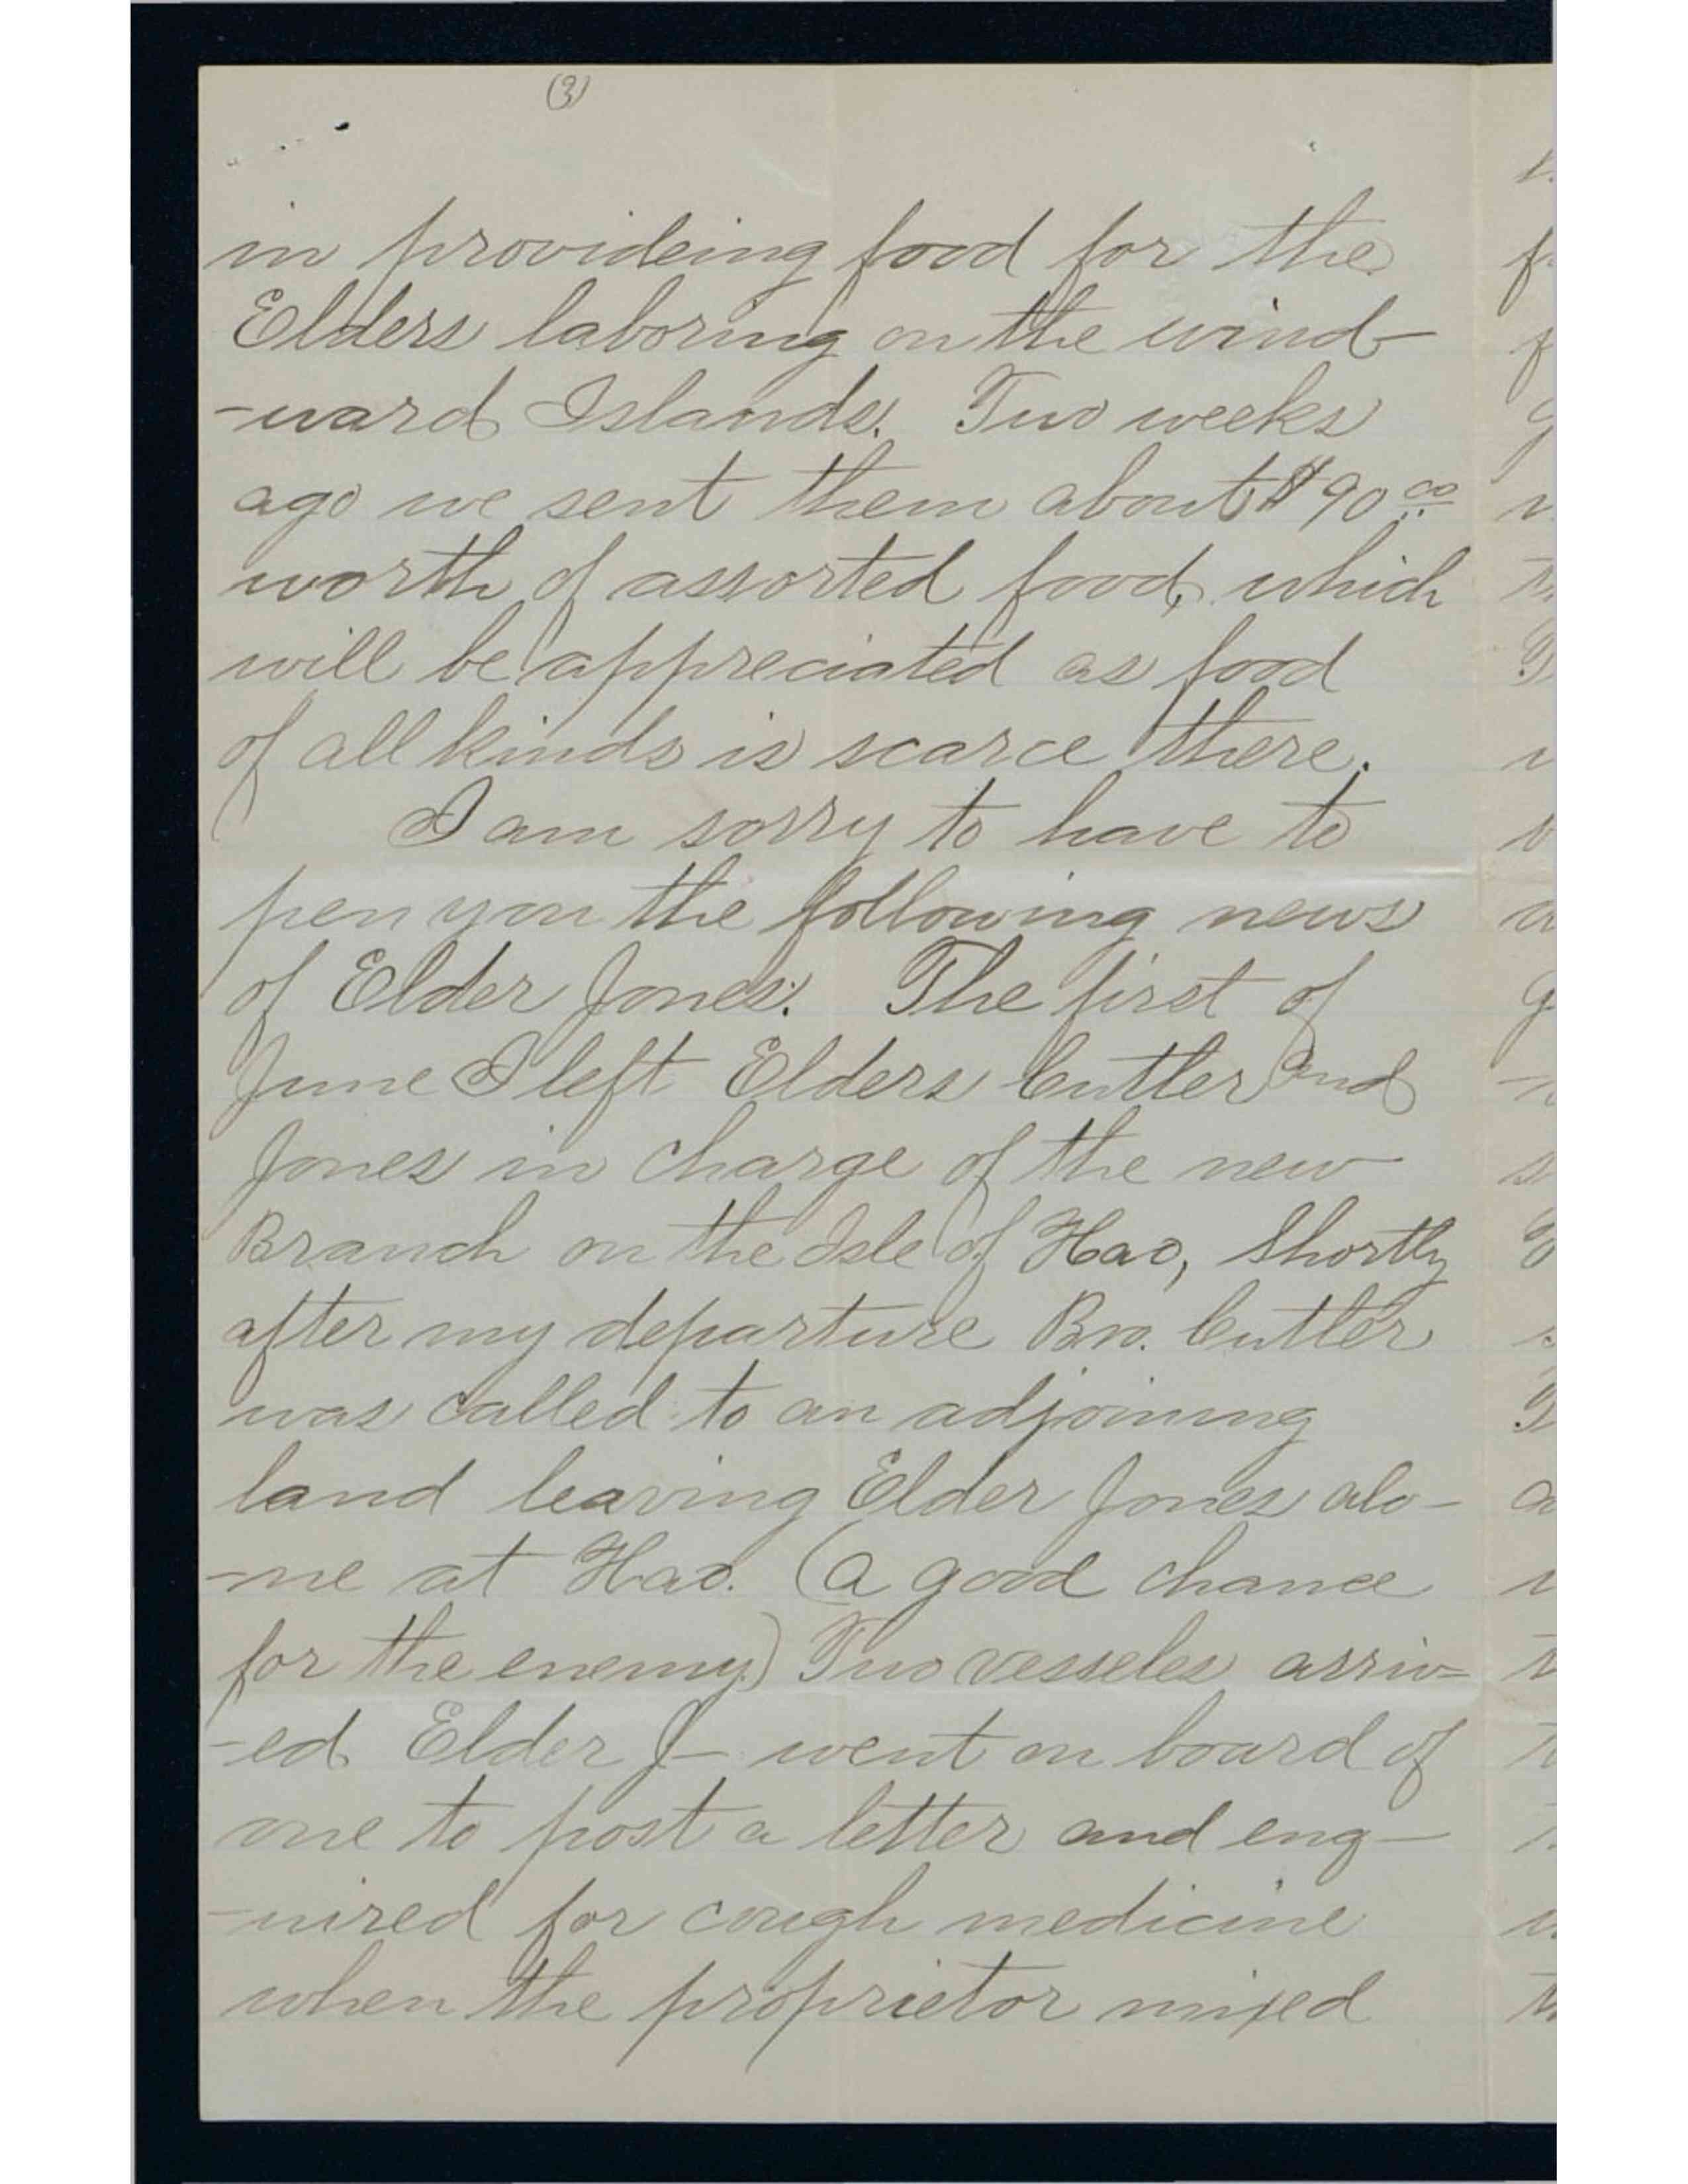 (3)
in provideing food for the
Elders laboring on the wind-
-ward Islands. Two weeks
ago we sent them about $90.00
worth of assorted food, which
will be appreciated as food
of all kinds is scarce there.
I am sorry to have to
pen you the following news
of Elder Jones. The first of
June I left Elders Cutler and
Jones in charge of the new
Branch on the Isle of Hao, Shortly
after my departure Bro. Cutler
was called to an adjoining
land leaving Elder Jones alo-
-ne at Hao. (a good chance
for the enemy.) Two vesseles arriv-
-ed Elder J- went on board of
one to post a letter and enq-
-uired for cough medicine
when the proprietor mixed